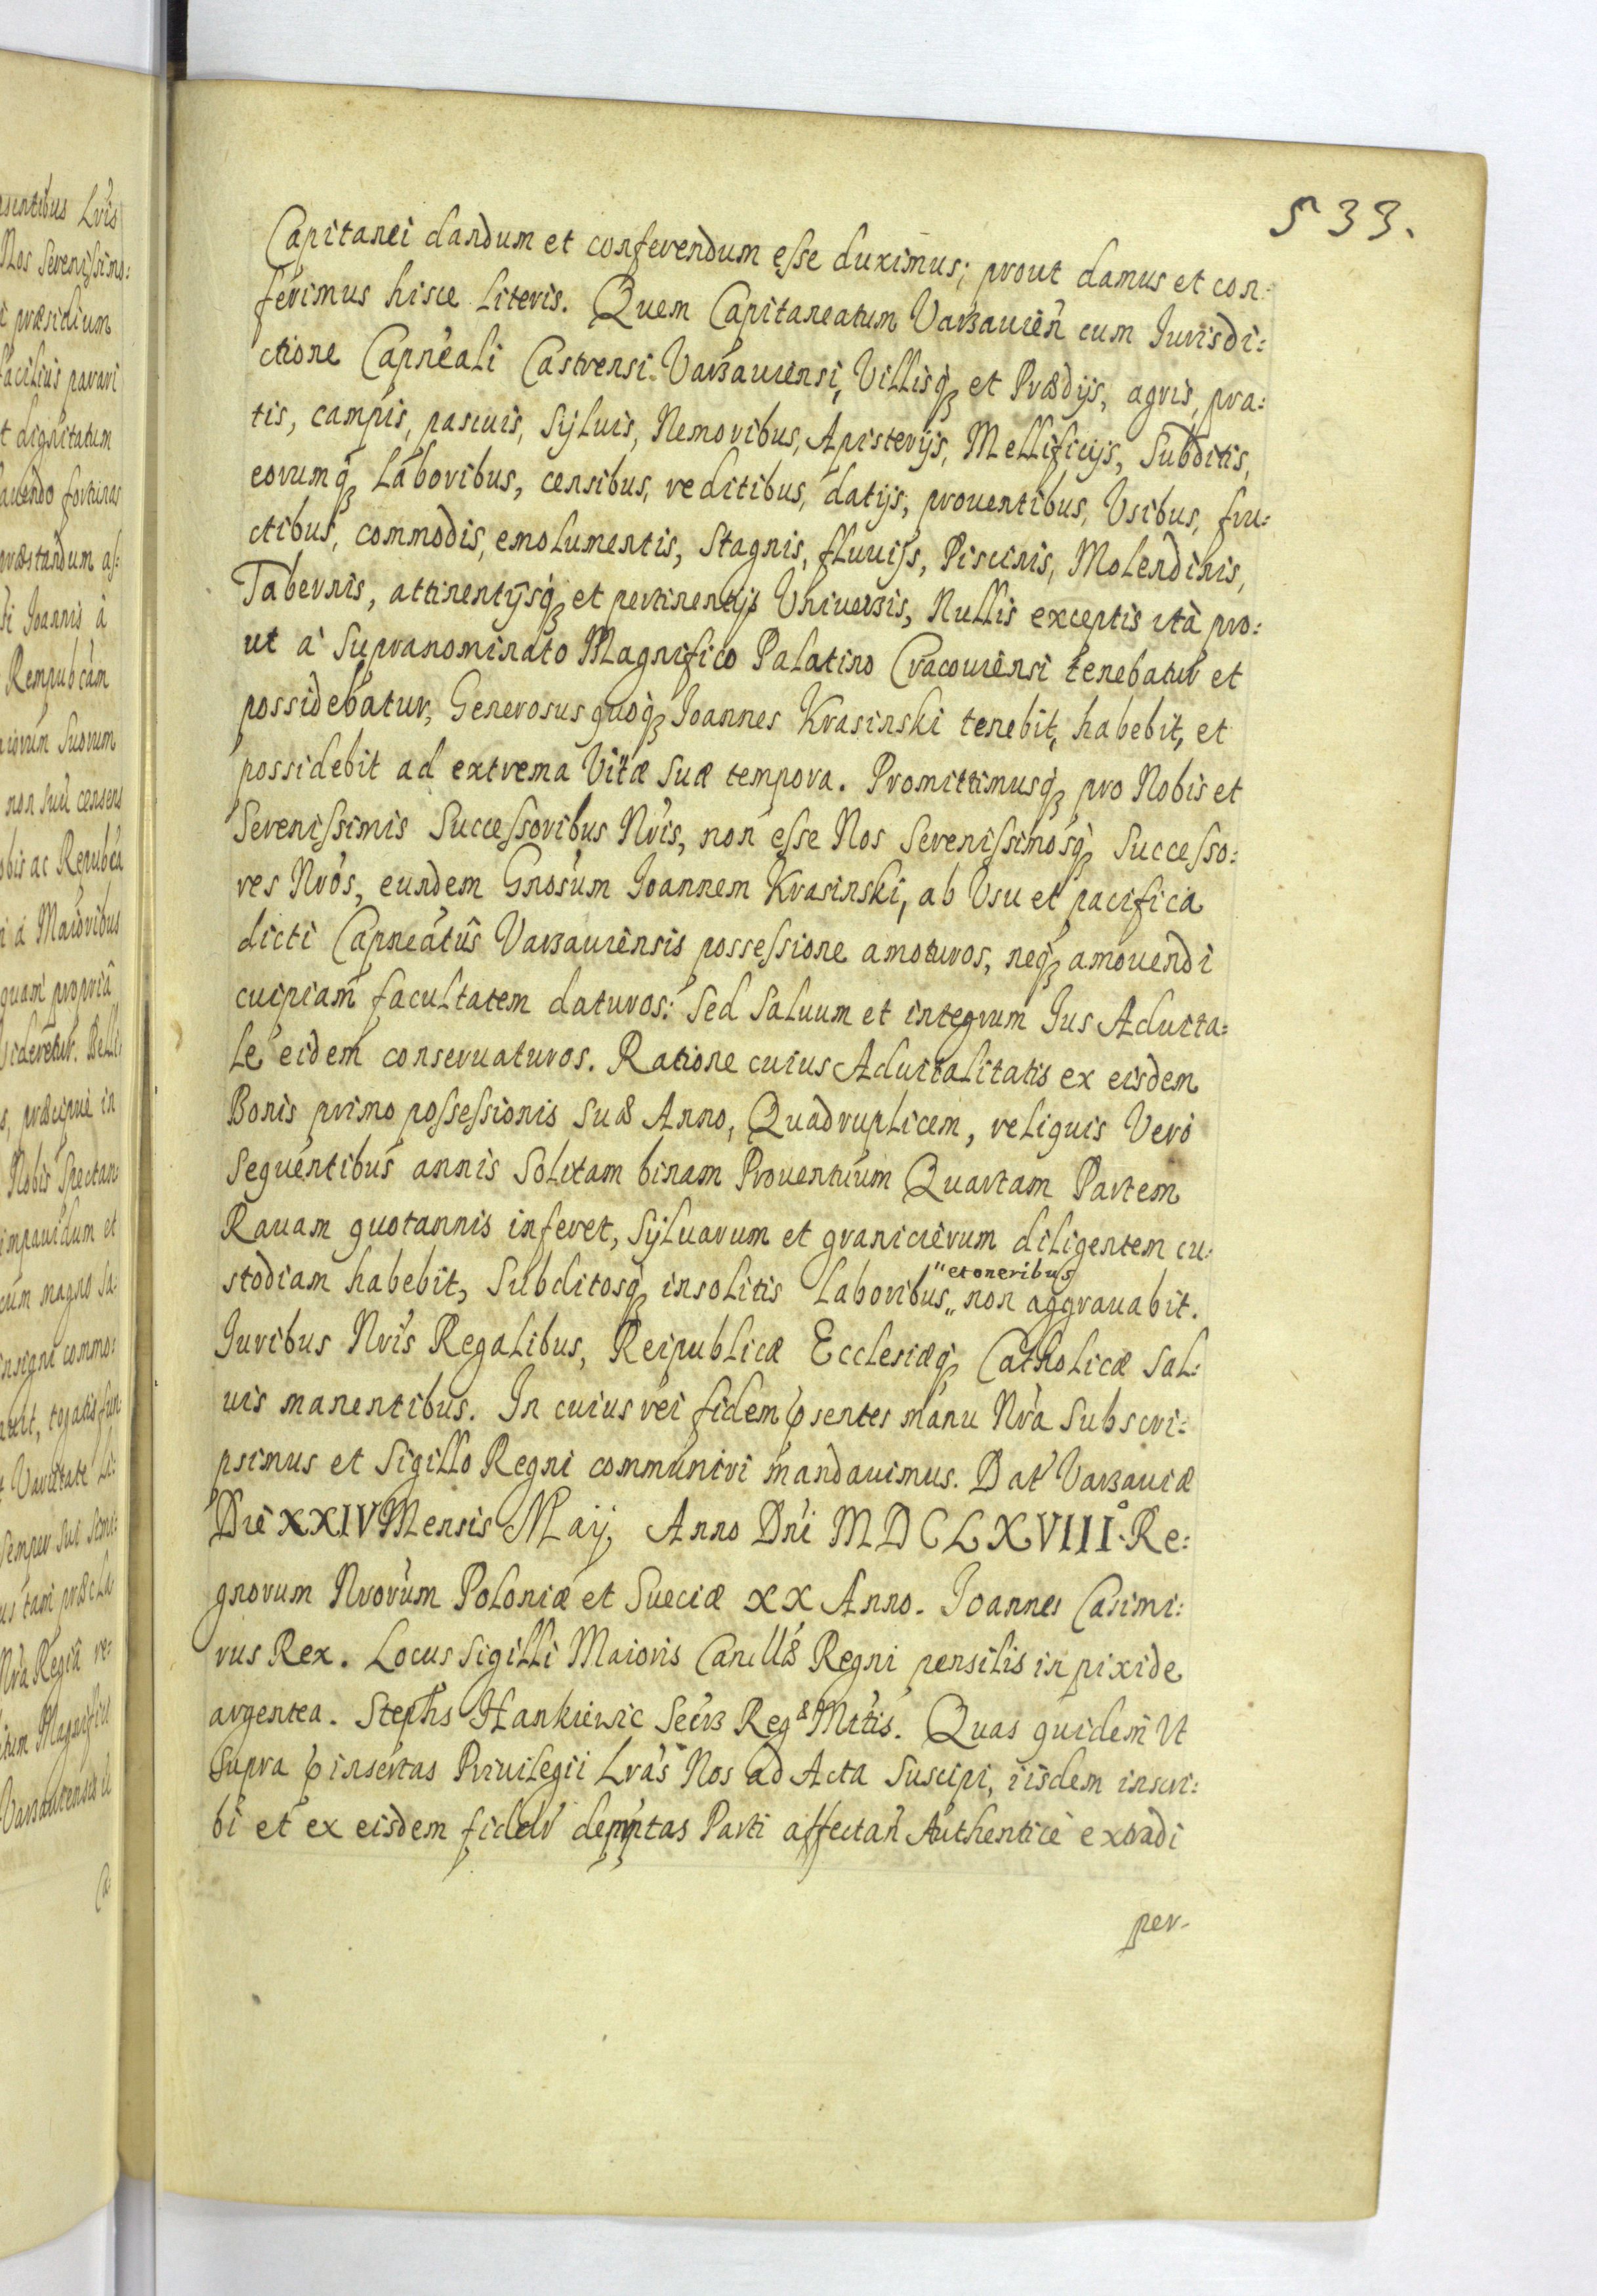 533.
Capitanei dandum et conferendum esse duximus; prout damus et con:
ferimus hisce literis. Quem Capitaneatum Varsauień cum Jurisdi:
ctione Capneali Castrensi Varsauiensi, Villisq́ et Prædijs, agris, pra:
tis, campis, pascuis, Syluis, Nemoribus, Apisterijs, Mellificijs, Subditis,
eorumq́ laboribus, censibus, reditibus, datijs, prouentibus, Vsibus, fru:
ctibus, commodis, emolumentis, Stagnis, fluuijs, Piscinis, Molendinis,
Tabernis, attinentijsq́ et pertinentijs Vniuersis, Nullis exceptis ità pro:
ut à Supranominato Magnifico Palatino Cracouiensi tenebatur et
possidebatur, Generosus quoq́ Joannes Krasinski tenebit, habebit, et
possidebit ad extrema Vitæ Suæ tempora. Promittimusq́ pro Nobis et
Serenissimis Successoribus Nr̃is, non esse Nos Serenissimosq́ Successo:
res Nr̃os, eundem Gnosum Joannem Krasinski, ab Vsu et pacifica
dicti Capneatûs Varsauiensis possessione amoturos, neq́ amouendi
cuipiam facultatem daturos: Sed Saluum et integrum Jus Aduita:
le eidem conseruaturos. Ratione cuius Aduitalitatis ex eisdem
Bonis primo possessionis Suæ Anno, Quadruplicem, reliquis Verò
Sequentibus annis Solitam binam Prouentuum Quartam Partem
Rauam quotannis inferet, Syluarum et granicierum diligentem cu:
stodiam habebit, Subditosq́ insolitis laboribus „ non aggrauabit.
" et oneribus
Juribus Nr̃is Regalibus, Reipublicæ Ecclesiæq́ Catholicæ Sal:
uis manentibus. In cuius rei fidem p̃sentes manu Nr̃a Subscri:
psimus et Sigillo Regni communiri mandauimus. Dat Varsauiæ
Die XXIV Mensis Maij, Anno Dñi MDCLXVIII° Re:
gnorum Nr̃orum Poloniæ et Sueciæ XX Anno. Joannes Casimi:
rus Rex. Locus Sigilli Maioris Cancllæ Regni pensilis in pixide
argentea. Stephs Hankiewic Secrs Regæ Mtis. Quas quidem Vt
Supra p̃insertas Priuilegii Lr̃as Nos ad Acta Suscipi, iisdem inscri:
bi et ex eisdem fidelr̃ depromptas Parti affectań Authenticè extradi
per-